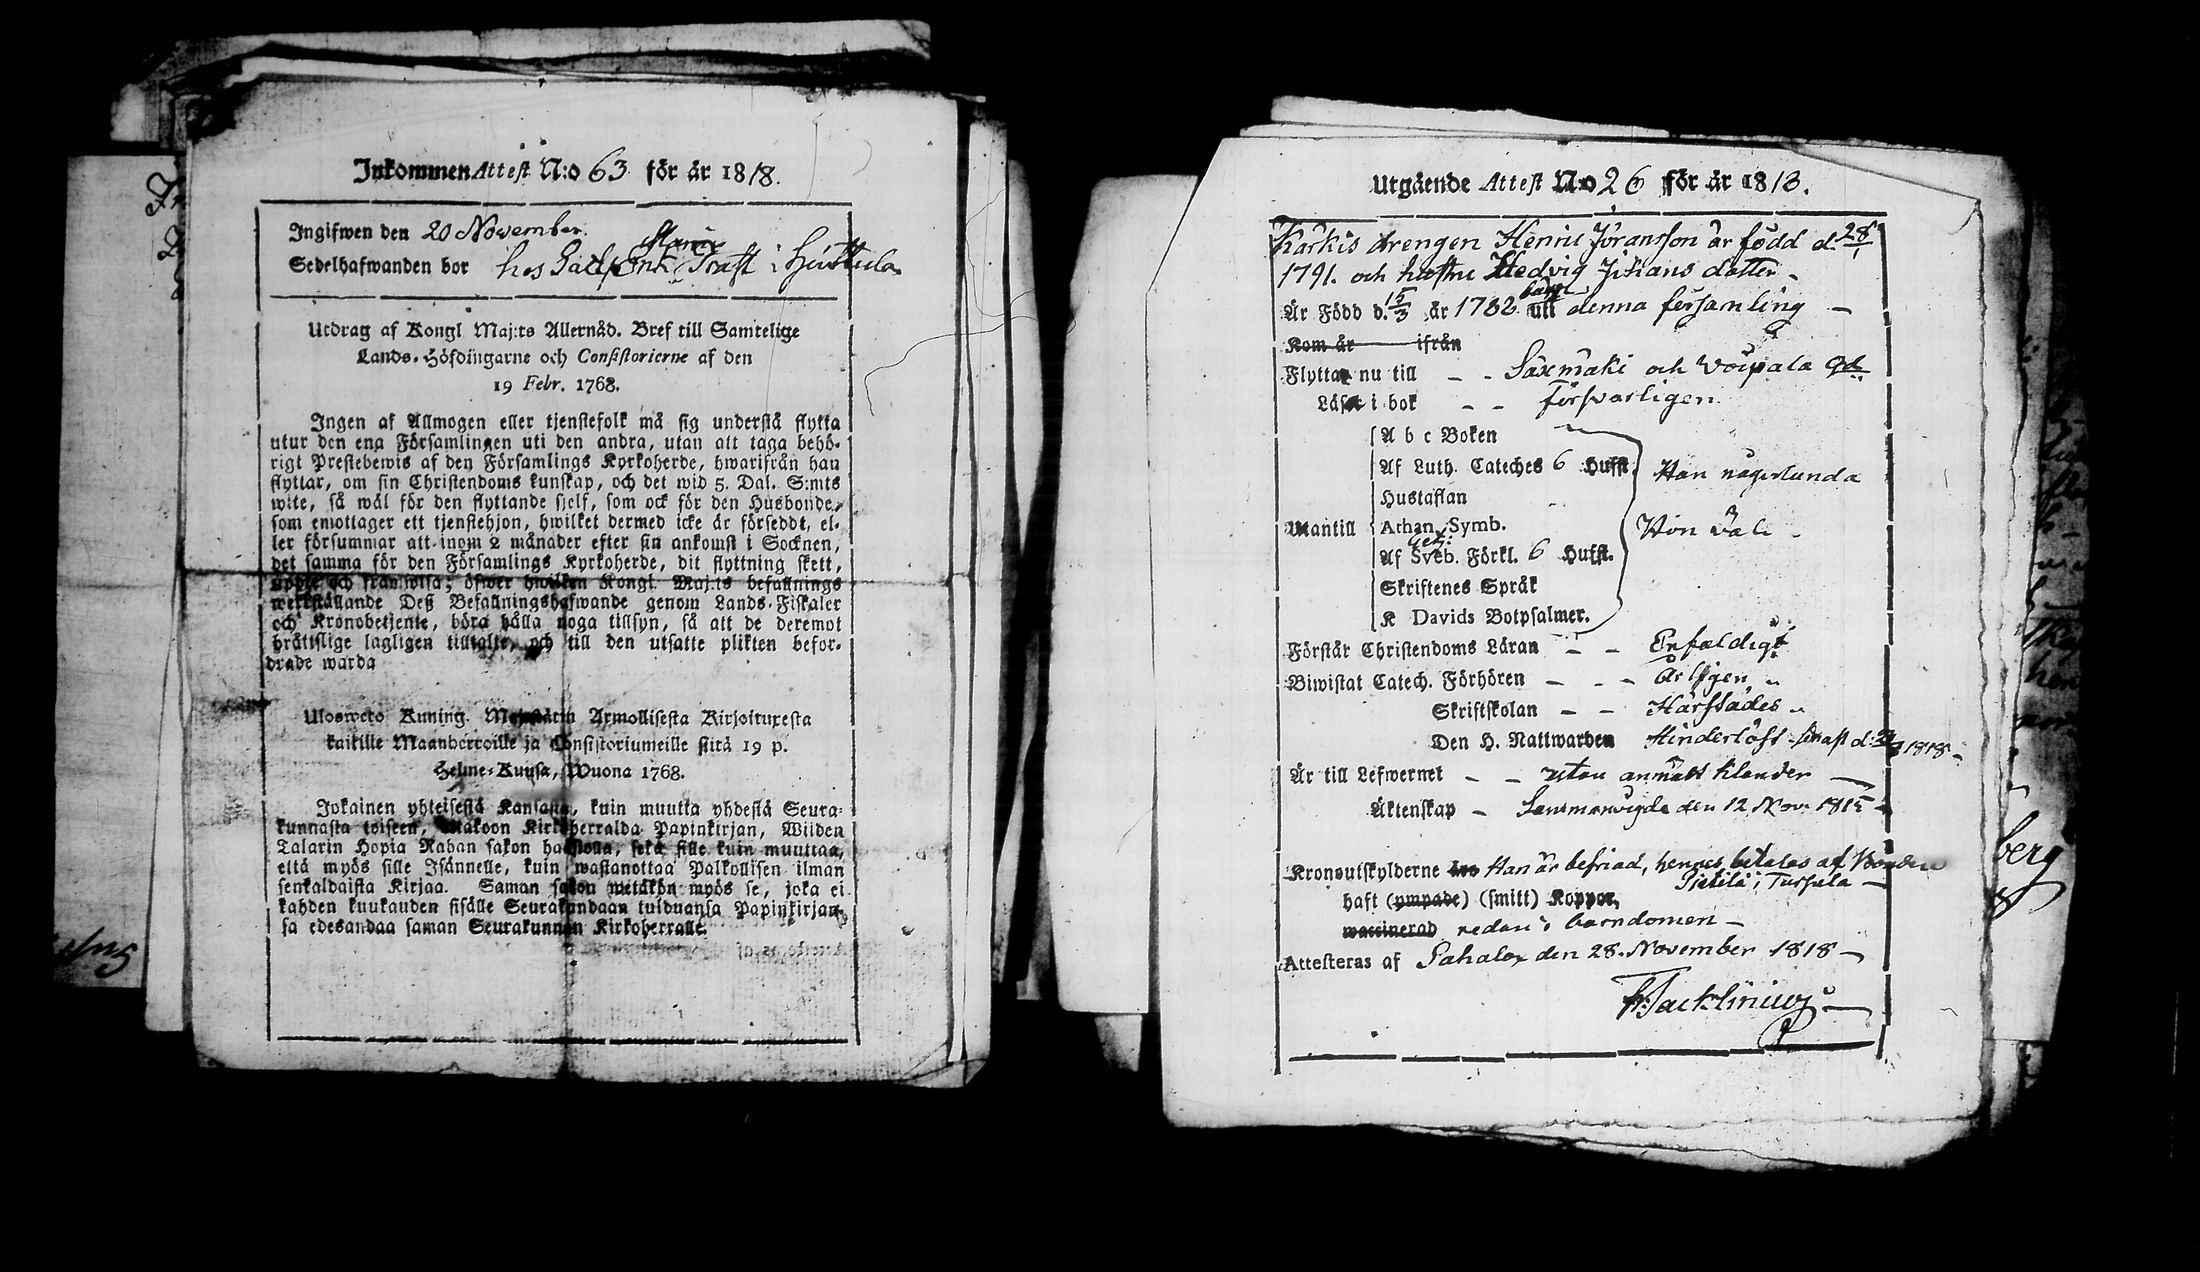 Inkommen Attest N:o 63 för år 1818.
Ingifwen den 20 November.
Maria
Sedelhafwanden bor hos Enk. Trast i Huttula
Utdrag af Kongl Maj:ts Allernåd. Bref till Samtelige
Lands-Höfdingarne och Consistorierne af den
19 Febr. 1768.
Ingen af Allmogen eller tjenstefolk må sig understå flytta
utur den ena Församlingen uti den andra, utan att taga behö-
rigt Prestebewis af den Församlings Kyrkoherde, hwarifrån han
flyttar, om sin Christendoms kunskap, och det wid 5. Dal. S:mts
wite, så wäl för den flyttande sjelf, som ock för den Husbonde,
som emottager ett tjenstehjon, hwilket dermed icke är försedt, el-
ler försummar att inom 2 månader efter sin ankomst i Socknen,
det samma för den Församlings Kyrkoherde, dit flyttning skett,
och framwisa; öfwer hwilken Kongl. Maj:ts befallnings
werkställande Deß Befallningshafwande genom Lands-Fiskaler
och Kronobetjente, böra hålla noga tillsyn, så att de deremot
bråttslige lagligen tilltalte, och till den utsatte plikten befor-
drade warda
Ulosweto Kuning. Majestätin Armollisesta Kirjoituxesta
kaikille Maanherroille ja Consistoriumeille siitä 19 p.
Helme-Kuusa, Wuona 1768.
Jokainen yhteisestä Kansasta, kuin muutta yhdestä Seura-
kunnasta toiseen, ottakoon Kirkkoherralda Papinkirjan, Wiiden
Talarin Hopia Rahan sakon haastolla, sekä sille kuin muuttaa,
että myös sille Isännelle, kuin wastanottaa Palkollisen ilman
senkaldaista Kirjaa. Saman sakon wetäkön myös se, joka ei
kahden kuukauden sisälle Seurakundaan tulduansa Papinkirjan-
sa edesandaa saman Seurakunnan Kirkoherralle.
Utgående Attest N:o 26 för år 1818.
Karkis drengen Henric Jöransson är född d. 28/1
1791. och hustru Hedvig Johans dotter
Är Född d. 15/3 år 1782 båge uti denna församling
Kom år ifrån
Flytta nu till Säxmäki och Voipala
Läsa i bok försvarligen
A b c Boken
Af Luth. Cateches 6 Hufst. Han någorlunda
Hustaflan
Athan. Symb. Hon väl
Utantill
Af Sveb. Förkl. 6 Hufst.
Skriftenes Språk
K Davids Botpsalmer.
Förstår Christendoms Läran Enfaldigt
Biwistat Catech. Förhören Årligen
Skriftskolan Härstädes
Den H. Nattwarden Hinderlöst sinast d. 1818
Är till Lefwernet utan anmält klander
Äktenskap Sammanvigde den 12 Nov. 1815
Kronoutskylderne Han är befriad, hennes betalas af Bonden
Pietilä i Turpela
haft (ympade) (smitt) Koppor,
waccinerad redan i barndomen
Attesteras af Sahalax den 28. November 1818